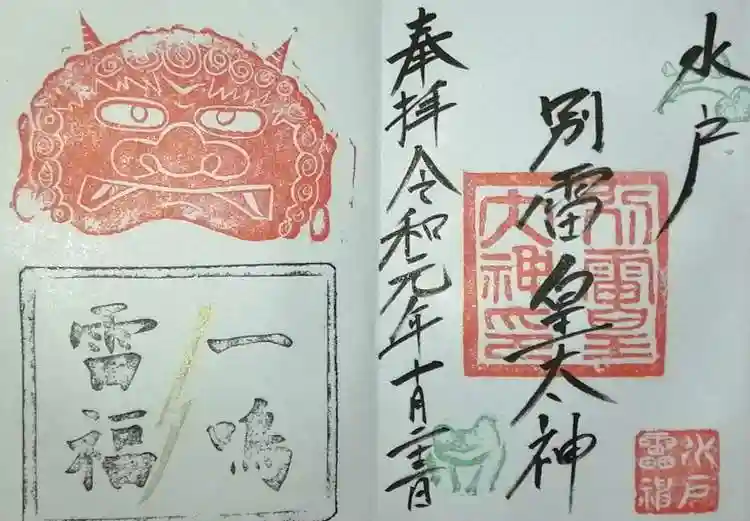 水戸
別雷皇太神
別雷皇
大神印
水戸
雷神
奉拝令和元年十月二十三日
一鳴
雷福